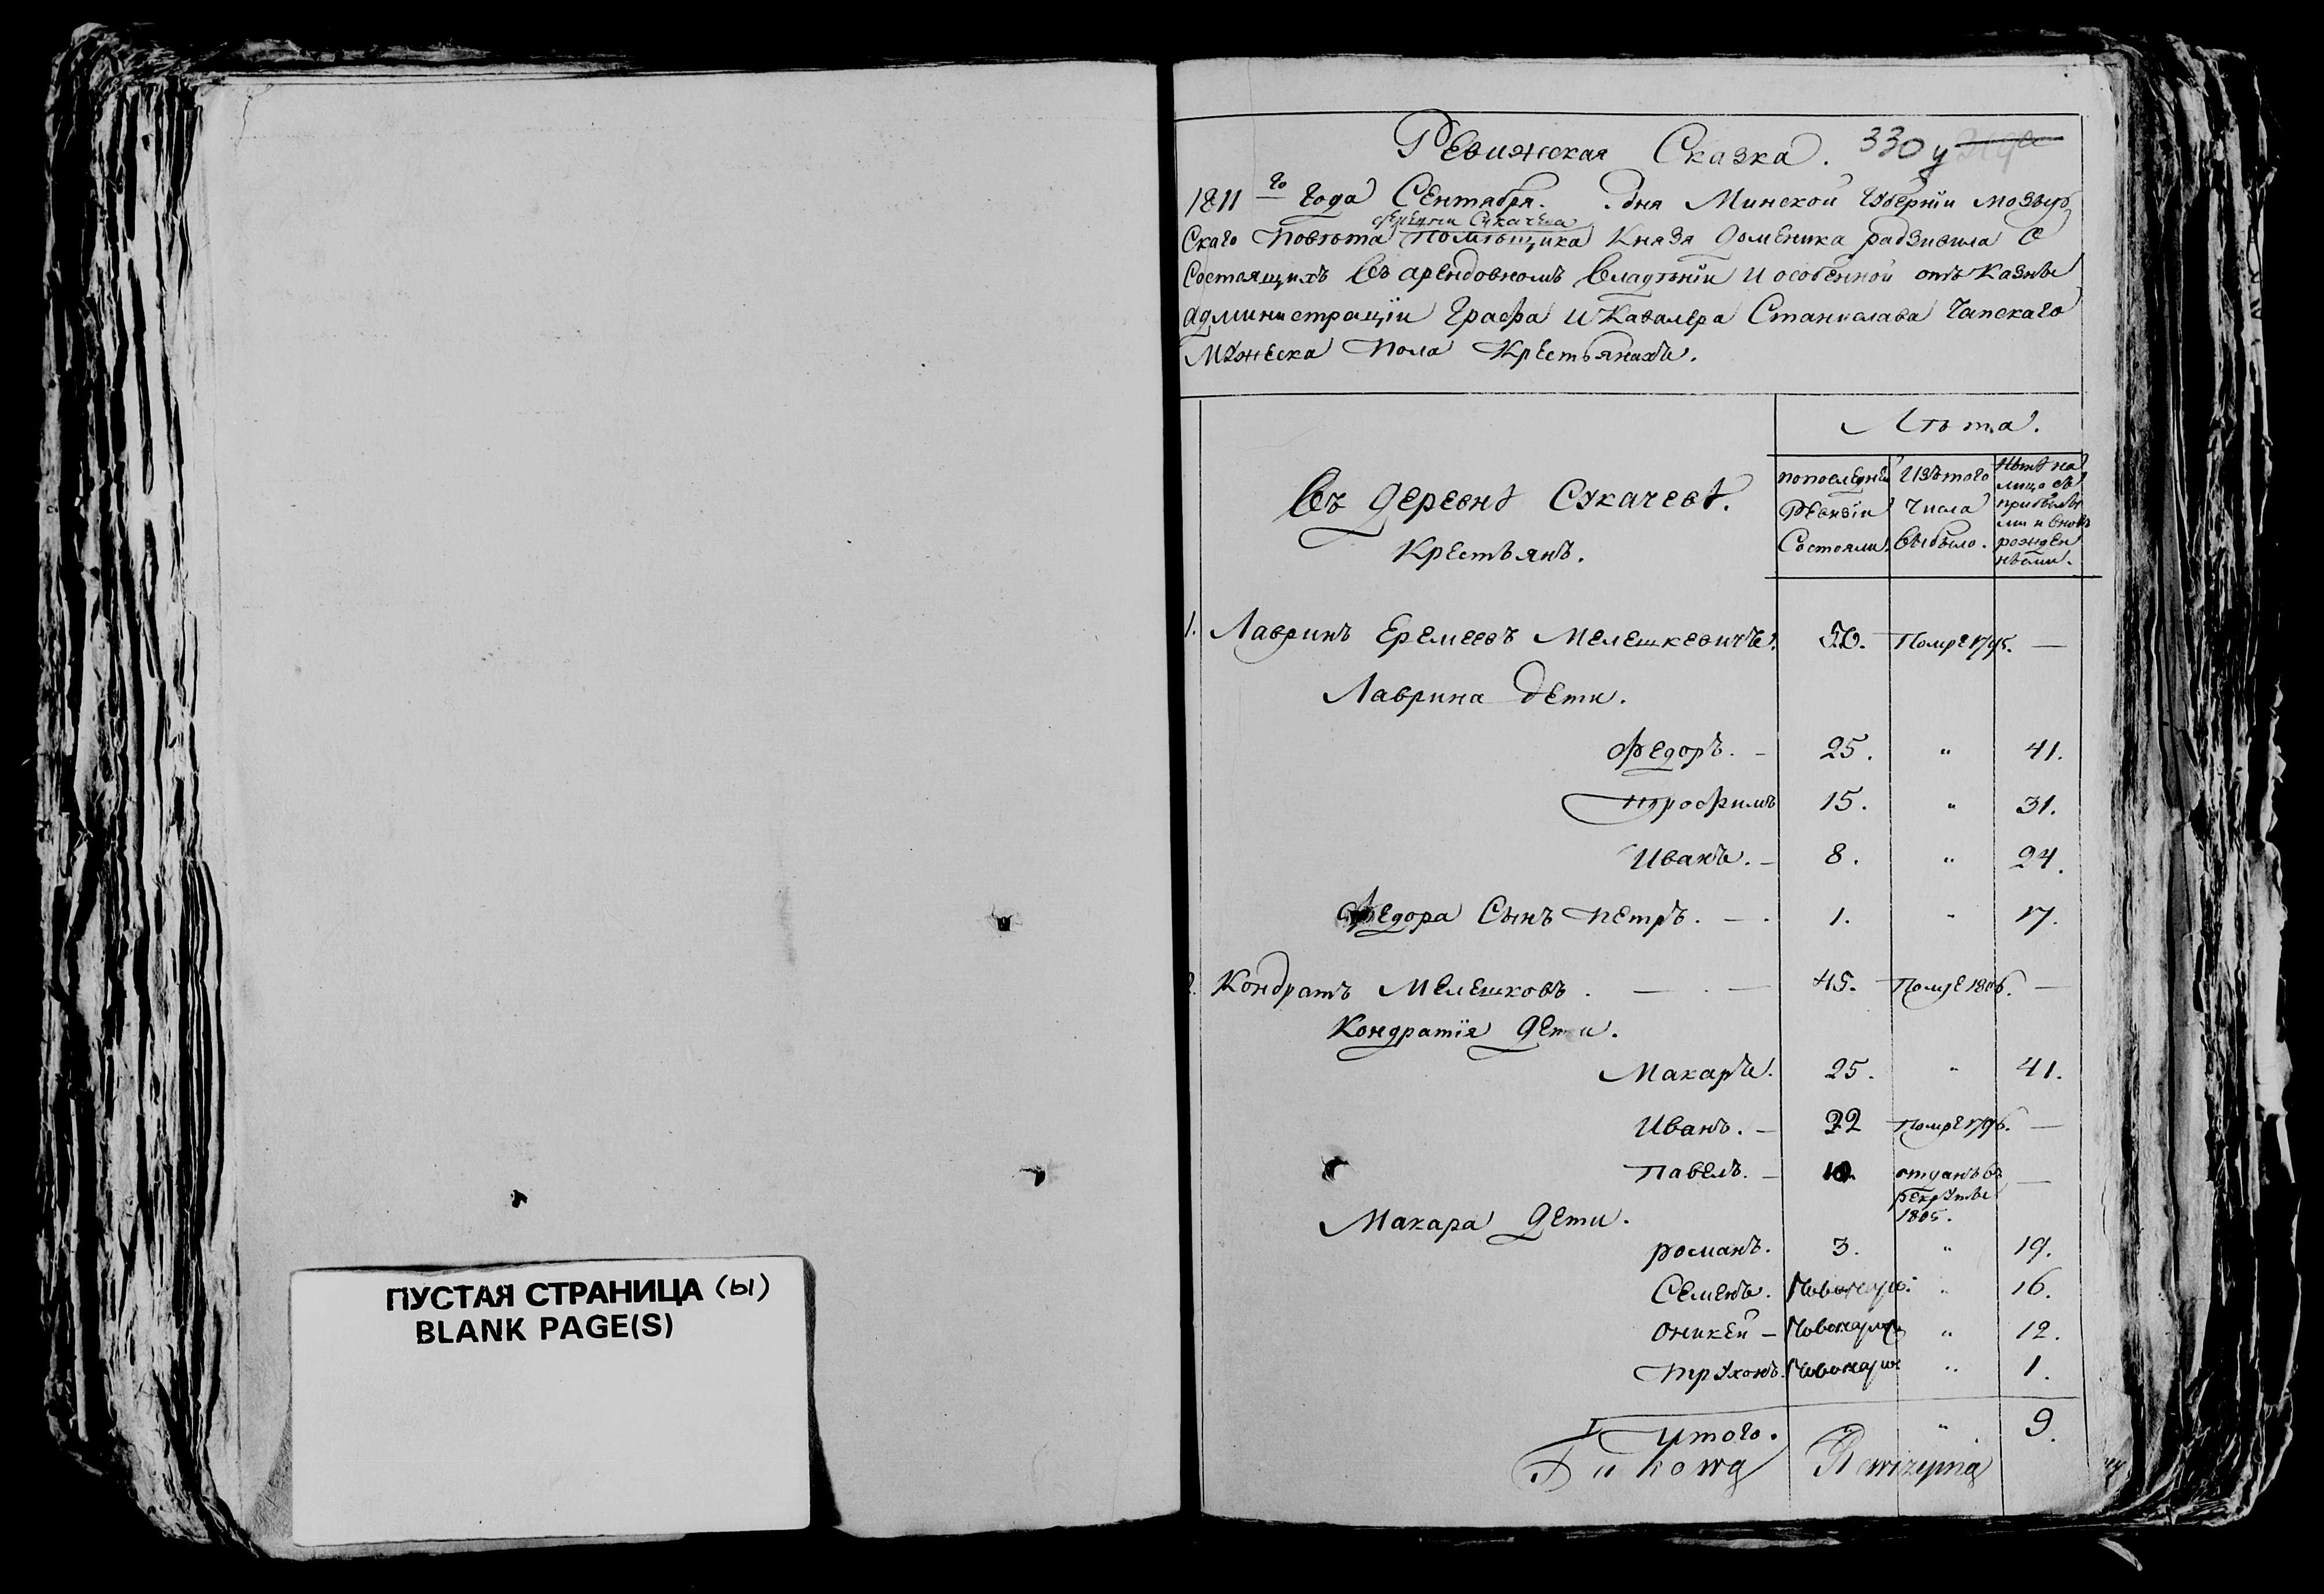 ПУСТАЯ СТРАНИЦА (ы)
BLANK PAGE(S)
Ревижская Сказка. 330
1811го года Сентября. дня Минской Губернїи мозыр
деревни Сукачева
скаго повѣта помѣщика Князя Доменика радзивила о
состоящихъ въ арендовномъ владѣнїи и особенной отъ казны
администрацїи Графа и Кавалера Станислава Чапскаго
мужеска пола крестьянахъ.
Лѣта.
Въ деревнѣ Сукачевѣ.
Крестьянъ.
попоследней Ревизїи Состояли.
Изътого Числа выбыло.
Нынѣ на лицо съ прибылы ми и вновь рожден ными.
1. Лавринъ Еремеевъ Мелешкевичъ. 50. Помре 1795. —
Лаврина дети.
Федоръ. — 25. " 41.
Трофимъ 15. " 31.
Иванъ. — 8. " 24.
Федора Сынъ Петръ. — . 1. " 17.
2. Кондратъ Мелешковъ . — . — 45. Помре 1806. —
Кондратїя дети.
Макаръ. 25. " 41.
Иванъ. — 22 Помре 1796. —
Павелъ. — 10. отданъ въ рекруты 1805. —
Макара дети.
романъ. 3. " 19.
Семенъ. Новонаро: " 16.
оникей — Новонаро " 12.
трухонъ. Новонаро " 1.
Итого. " 9.
Rewizyina